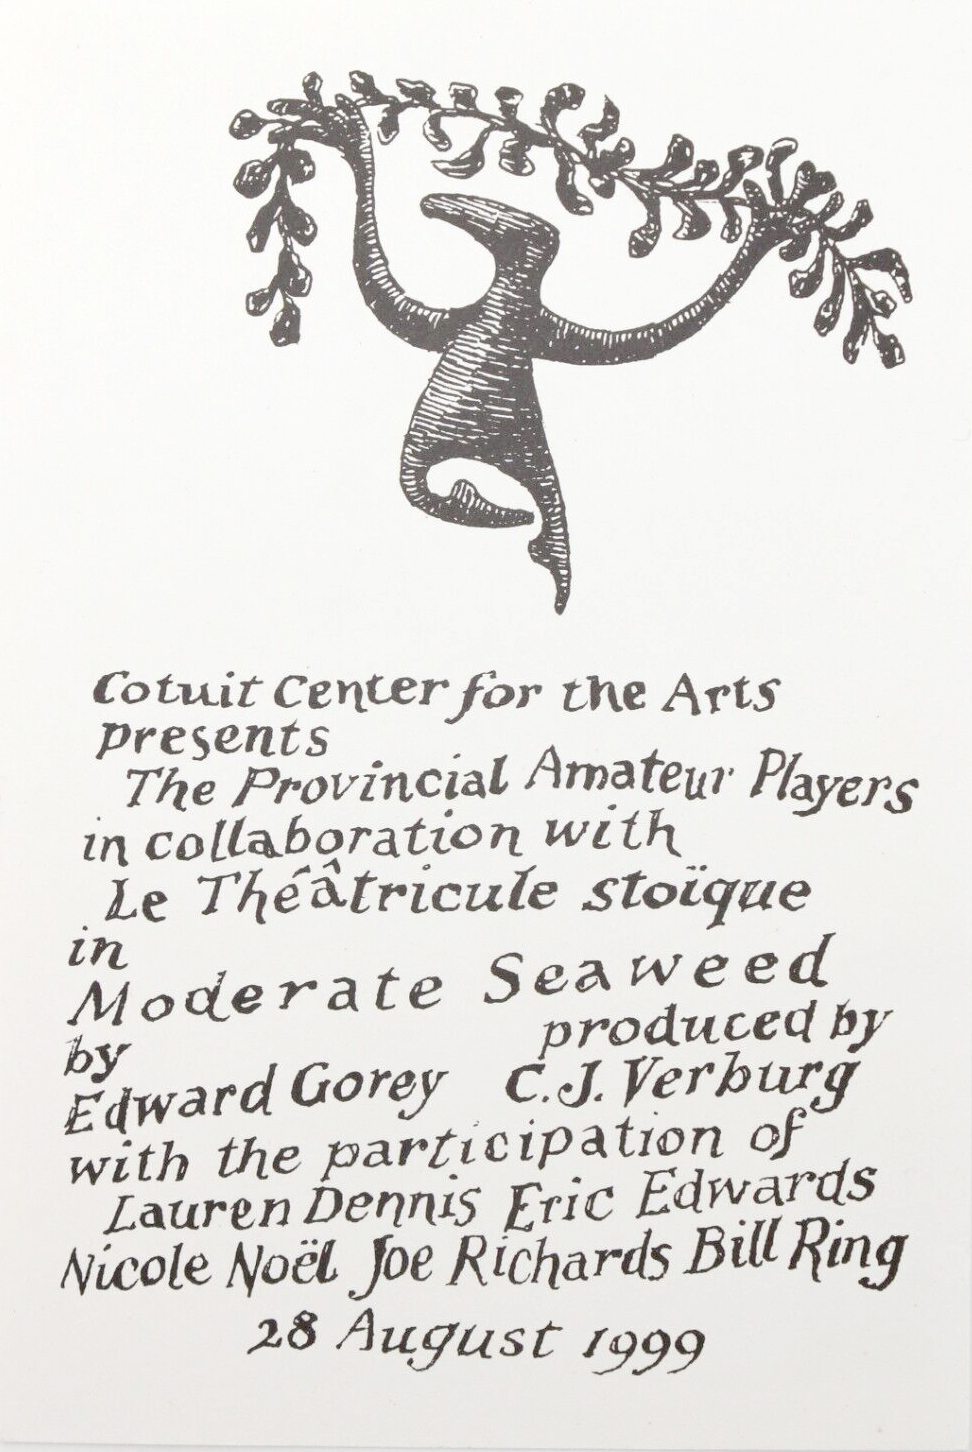 Cotuit Center for the Arts
presents
The Provincial Amateur Players
in collaboration with
Le Théâtricule stoïque
in
Moderate Seaweed
by produced by
Edward Gorey C.J. Verburg
with the participation of
Lauren Dennis Eric Edwards
Nicole Noël Joe Richards Bill Ring
28 August 1999